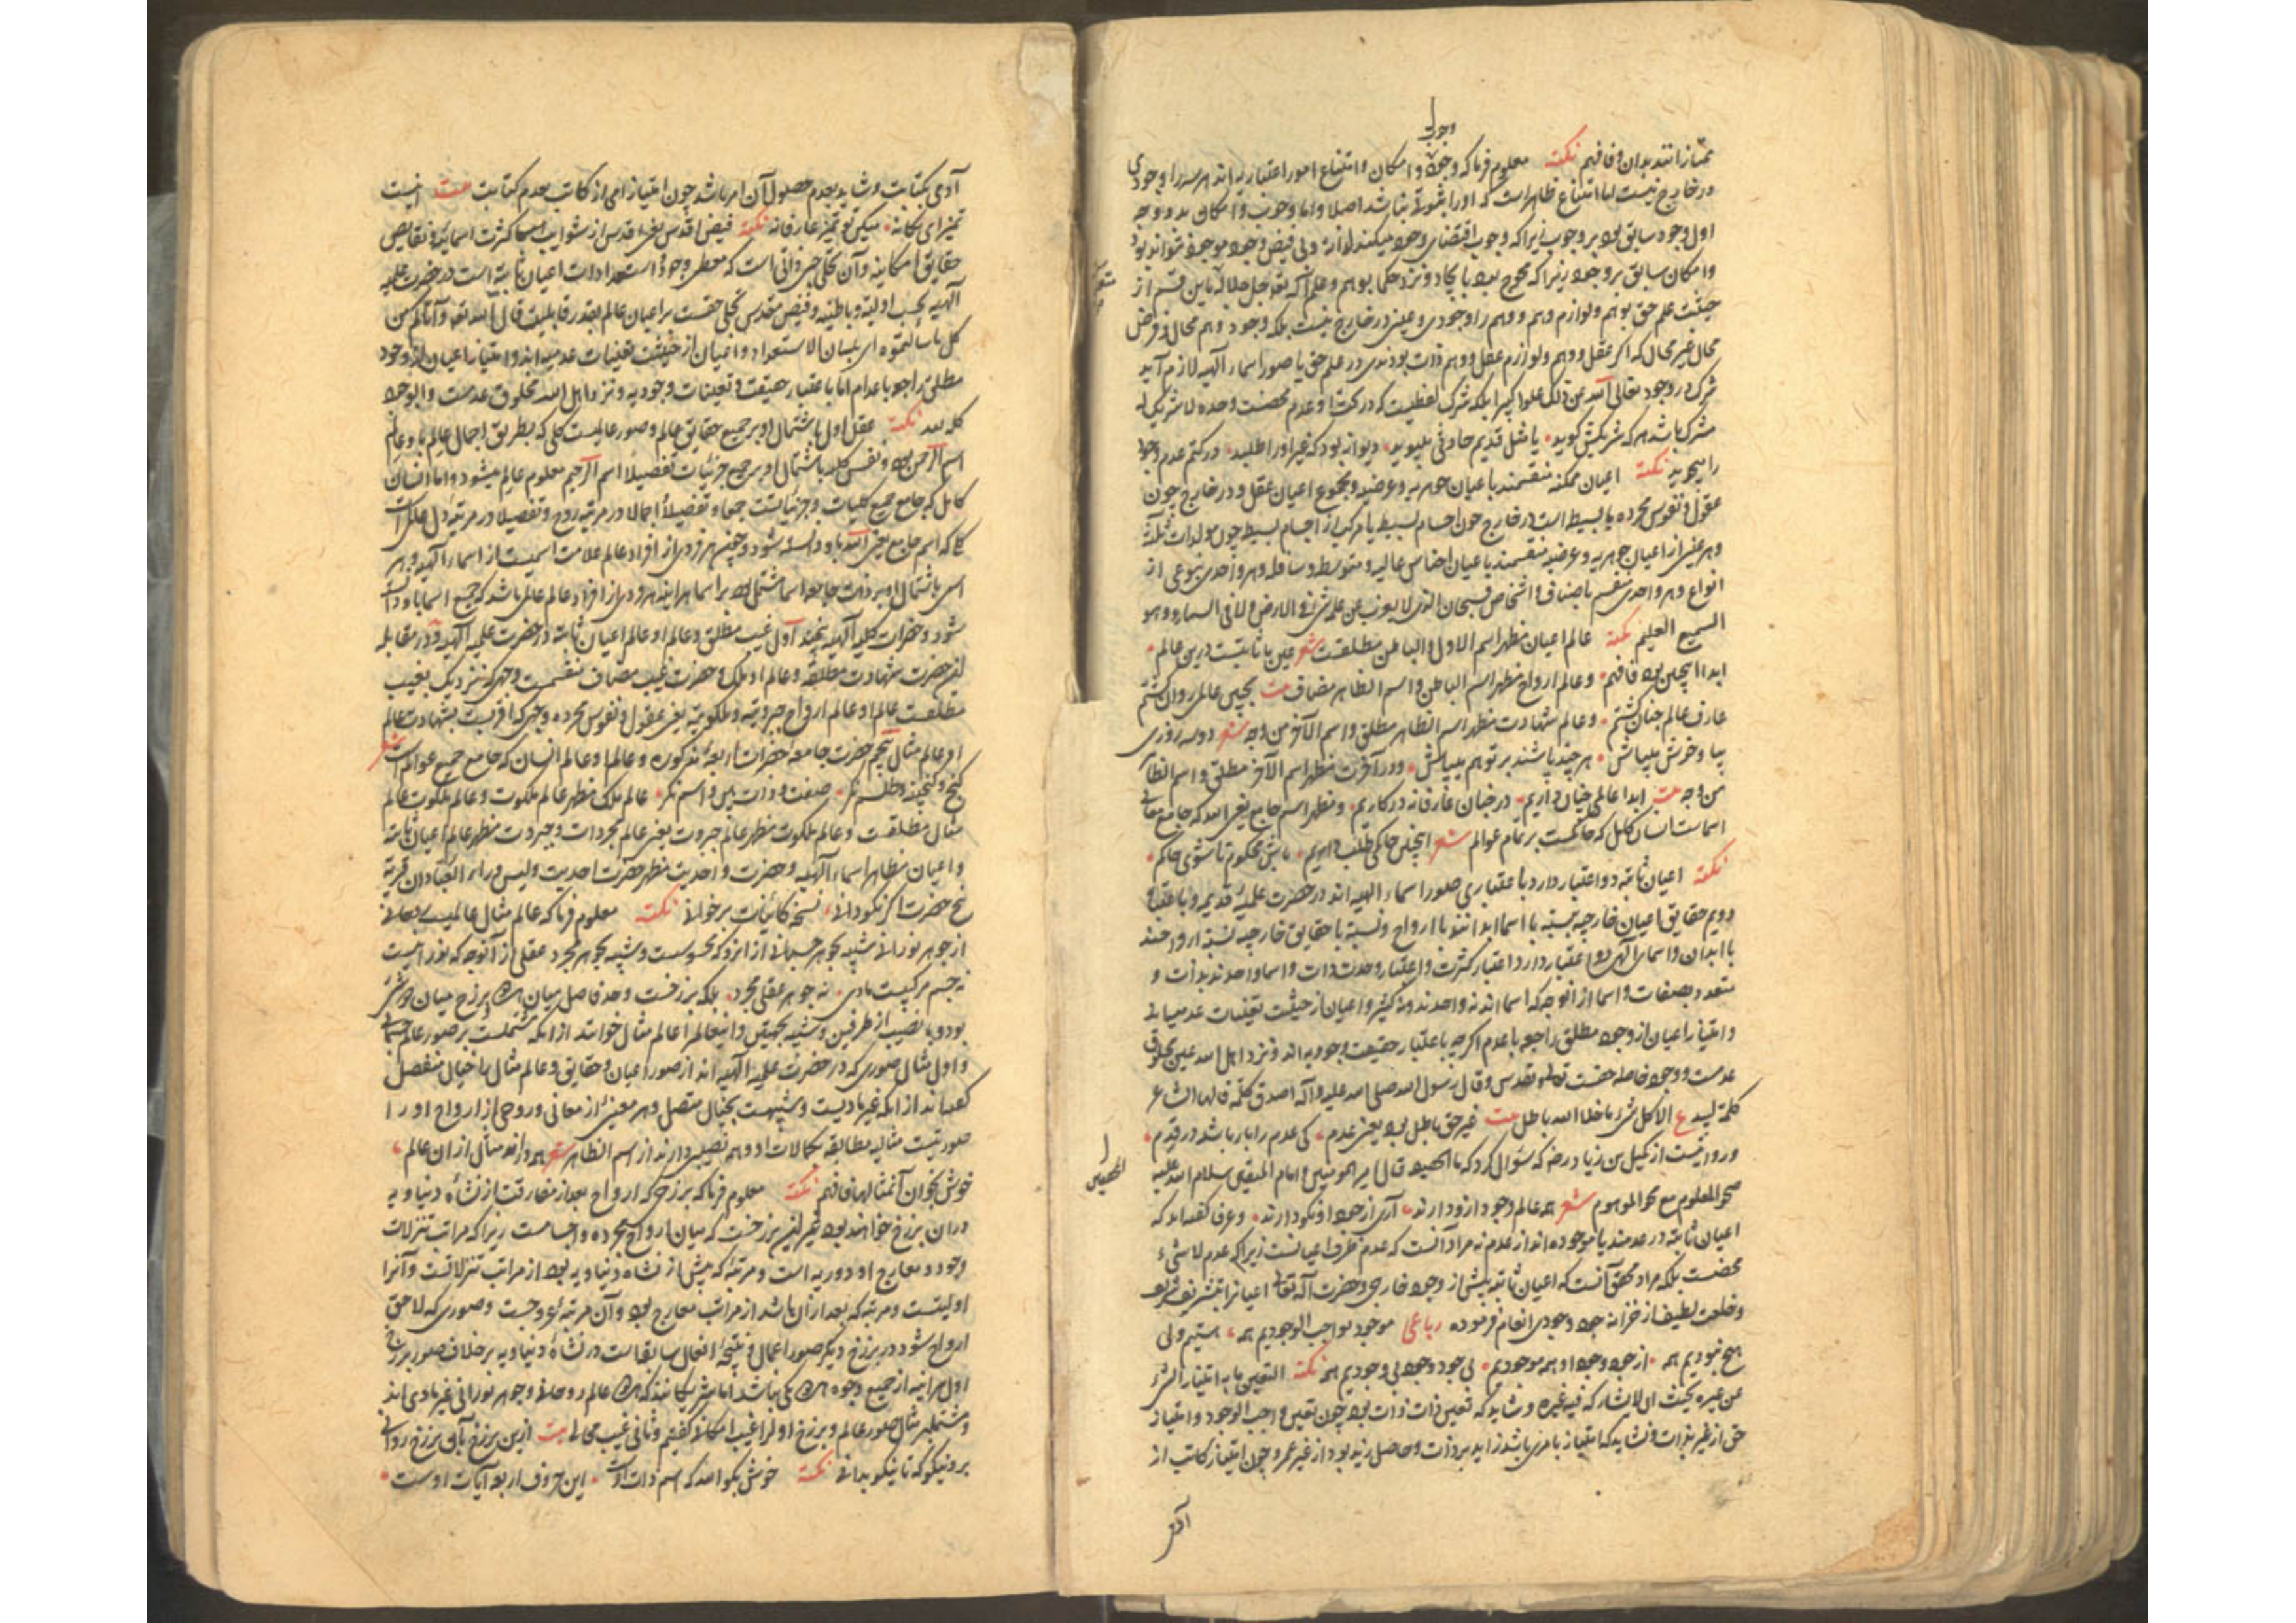 وجوب
ممتازانند بدان فافهم نکته معلوم فرما که وجوب و امکان و امتناع امور اعتباریه اند هر سه را وجودی
در خارج نیست اما امتناع ظاهر است که او را ثبوتی نباشد اصلا و اما وجوب و امکان بدو وجه
اول وجود سابق بود بر وجوب زیرا که وجوب اقتضای وجود میکند لذاته و بی فیض وجود موجود نتواند بود
و امکان سابق بر وجود زیرا که محوج بود بایجاد و نزد حکما بوهم و علم الله تعه جل جلاله باین قسم از
حیثیت علم حق بوهم و لوازم وهم و وهم را وجودی و عینی در خارج نیست بلکه وجود وهم محال و فرض
محال غیر محال که اگر عقل و وهم و لوازم عقل و وهم ذات بودندی در علم حق یا صور اسماء الهیه لازم آید
شرک در وجود تعالی الله عن ذلک علوا کبیرا بلکه شرک لفظیست که در تحت او عدم محضست وحده لا شریک له
مشرک باشد هر که شریکش گوید یا مثل قدیم حادثی پلیوید دیوانه بود که غیر او را طلبد در کتم عدم وجود
را میجوید نکته اعیان ممکنه منقسمند باعیان جوهریه و عرضیه و مجموع اعیان عقل و در خارج چون
عقول و نفوس مجرده یا بسیط است در خارج چون اجسام بسیط یا مرکب از اجسام بسیط چون مولدات ثلثه
و هر عینی از اعیان جوهریه و عرضیه منقسمند باعیان اجناس عالیه و متوسطه و سافله و هر واحدی بنوعی از
انواع و هر واحدی منقسم باصناف و اشخاص فسبحان الذی لا یعزب عن علمه شئ فی الارض و لا فی السماء و هو
السمیع العلیم نکته عالم اعیان مظهر اسم الاول و الباطن مطلقست شعر عین ما ثابتست درین عالم
ابدا اینچنین بود فافهم و عالم ارواح مظهر اسم الباطن و اسم الظاهر مضاف بیت بچنین عالمی روان گشتم
عارف عالم جنان گشتم و عالم شهادت مظهر اسم الظاهر مطلق و اسم الآخر من وجه شعر دو سه روزی
بیا و خوش میباش هر چند باشند بر تو هم میپاش و در آخرت مظهر اسم الآخر مطلق و اسم الظاهر
من وجه بیت ابدا عالمی چنان داریم در جنان عارفانه در کاریم و مظهر اسم جامع یعنی الله که جامع معانی
اسماست انسان کامل که حاکمست بر تمام عوالم شعر اینچنین حاکمی طلب داریم باش محکوم تا شوی حاکم
نکته اعیان ثابته دو اعتبار دارد باعتباری صور اسماء الهیه اند در حضرت علمیه قدیم و باعتبار
دویم حقایق اعیان خارجیه نسبت با اسما ابدانند با ارواح و نسبت با حقایق خارجیه نسبت ارواحند
با ابدان و اسمای الهی دو اعتبار دارد اعتبار کثرت و اعتبار وحدت ذات و اسما واحدند بذات و
متعدد بصفات و اسما از آنوجه که اسما اند نه واحدند و نه کثیر و اعیان از حیثیت تعینات عدمیه اند
و امتیاز اعیان از وجود مطلق راجع باعدم اگرچه باعتبار حقیقت وجودیه اند و نزد اهل الله عین مخلوق
عدمست و وجود فاصله حقست تعالی و تقدس و قال رسول الله صلی الله علیه و آله اصدق کلمة قالها الشاعر
کلمة لبید ع الا کل شئ ما خلا الله باطل بیت غیر حق باطل بود یعنی عدم کی عدم را بار باشد در قدم
و روایتست از کمیل بن زیاد رضه که سؤال کرد که ما الحقیقه قال امیر المومنین و امام المتقین سلام الله علیه
صحو المعلوم مع محو الموهوم شعر همه عالم وجود ازو دارند آری از جود او نکو دارند و عرفا گفته اند که
اعیان ثابته در عدمند یا موجوده اند از عدم نه مراد آنست که عدم ظرف اعیانست زیرا که عدم لا شئ
محضست بلکه مراد محقق آنست که اعیان ثابته پیش از وجود خارجی و حضرت اله تعالی اعیانرا بتشریف شریف
و خلعت لطیف از خزانه جود وجودی انعام فرموده رباعی موجود بواجب الوجودیم همه هستیم ولی
هیچ نبودیم همه از جود وجود او همه موجودیم بی جود وجود بی وجودیم همه نکته التعین ما به امتیاز الشئ
عن غیره بحیث ان لا یشارکه فیه غیره و شاید که تعین ذات ذات بود چون تعین واجب الوجود و امتیاز
حق از غیر بذات و نشاید که امتیاز بامری باشد زاید بر ذات و حاصل زید بود از غیر عمرو چون امتیاز کاتب از
الحقیقه
آدمی بکتابت و شاید بعدم حصول آن امر باشد چون امتیاز امی از کاتب بعدم کتابت بیت اینست
تمیز ای یگانه میکن تو تمیز عارفانه نکته فیض اقدس یعنی اقدس از شوایب اسما کثرت اسمائیه و نقایص
حقایق امکانیه و آن تجلی حبی ذاتی است که معطی وجود استعدادات اعیان ثابته است در حضرت علمیه
الهیه بحسب اولیه و باطنیه و فیض مقدس تجلی حقست بر اعیان عالم بقدر قابلیت قال الله تعه و آتاکم من
کل ما سألتموه ای بلسان الاستعداد و اعیان از حیثیت تعینات عدمیه اند و امتیاز اعیان از وجود
مطلق راجع باعدام اما باعتبار حقیقت و تعینات وجودیه و نزد اهل الله مخلوق عدمست و الوجود
کله لله نکته عقل اول باشتمال او بر جمیع حقایق عالم و صور عالمیست کلی که بطریق اجمال عالم باو عالم
اسم الرحمن بود و نفس کلیه باشتمال او بر جمیع جزئیات تفصیلا اسم الرحیم معلوم عالم میشود و اما انسان
کامل که جامع جمیع کلیات و جزئیاتست جمعا و تفصیلا اجمالا در مرتبه روح و تفصیلا در مرتبه دل عالمی است
که اسم جامع یعنی الله باو دانسته شود و چنین هر فردی از افراد عالم علامت اسمیست از اسماء الهیه و هر
اسمی باشتمال او بر ذات جامعه اسما مشتمل بود بر اسما هر آینه هر فردی از افراد عالم عالمی باشد که جمیع اسما باو دانسته
شود و حضرات کلیه الهیه پنجند اول غیب مطلق و عالم او عالم اعیان ثابته در حضرت علمیه الهیه و در مقابله
این حضرت شهادت مطلقه و عالم او ملک و حضرت غیب مضاف منقسمست وجهی که نزدیک بغیب
مطلقست عالم او عالم ارواح جبروتیه و ملکوتیه یعنی عقول و نفوس مجرده و وجهی که اقربست بشهادت عالم
او عالم مثال پنجم حضرت جامعه حضرات اربعه مذکوره و عالم او عالم انسان که جامع جمیع عوالم است شعر
گنج و گنجینه و طلسم نگر صفت و ذات بین و اسم نگر عالم ملک مظهر عالم ملکوت و عالم ملکوت عالم
مثال مطلقست و عالم ملکوت مظهر عالم جبروت یعنی عالم مجردات و جبروت مظهر عالم اعیان ثابته
و اعیان مظاهر اسماء الهیه و حضرت واحدیت مظهر حضرت احدیت و لیس وراء العبادان قریة
پنج حضرت اگر نکو دانی نسخه کائنات برخوانی نکته معلوم فرما که عالم مثال عالمیست روحانی
از جوهر نورانی شبیه بجوهر جسمانی از انرو که محسوسست و شبیه بجوهر مجرد عقلی از آنوجه که نورانیست
نه جسم مرکبیست مادی نه جوهر عقلی مجرد بلکه برزخست و حد فاصل میان هر دو برزخ میان دو شئ
بود و با نصیب از طرفین و شبیه بجهتین و اینعالم را عالم مثال خوانند از انکه مشتملست بر صور عالم جسمانی
و اول مثال صوری که در حضرت علمیه الهیه اند از صور اعیان و حقایق و عالم مثال را خیال منفصل
گفته اند از انکه غیر مادیست و شبیهست بخیال متصل و هر معنی از معانی و روحی از ارواح او را
صورتیست مثالیه مطابقه کمالات او و همه نصیبی دارند از اسم الظاهر شعر همه دارند مثالی از ان عالم
خوش بخوان آن مثالها فافهم نکته معلوم فرما که برزخی که ارواح بعد از مفارقت از نشأه دنیاویه
در ان برزخ خواهند بود غیر این برزخست که میان ارواح مجرده و اجسامست زیرا که مراتب تنزلات
وجود و معارج او دوریه است و مرتبه که پیش از نشأه دنیاویه بود از مراتب تنزلاتست و آنرا
اولیتست و مرتبه که بعد از ان باشد از مراتب معارج بود و آن مرتبه عروجست و صوری که لاحق
ارواح شود در برزخ دیگر صور اعمال و نتیجه افعال سابقاست در نشأه دنیاویه بر خلاف صور برزخ
اول هر آینه از جمیع وجوه هر دو یکی نباشد اما شریکانند که هر دو عالم روحانی و جوهر نورانی غیر مادی اند
و مشتمل بر مثال صور عالم و برزخ اول را غیب امکانی گفتیم و ثانی غیب محالی بیت ازین برزخ بآن برزخ روانی
برو نیکو که تا نیکو بدانی نکته خوش بگو الله که اسم ذات اوست این حروف اربعه آیات اوست